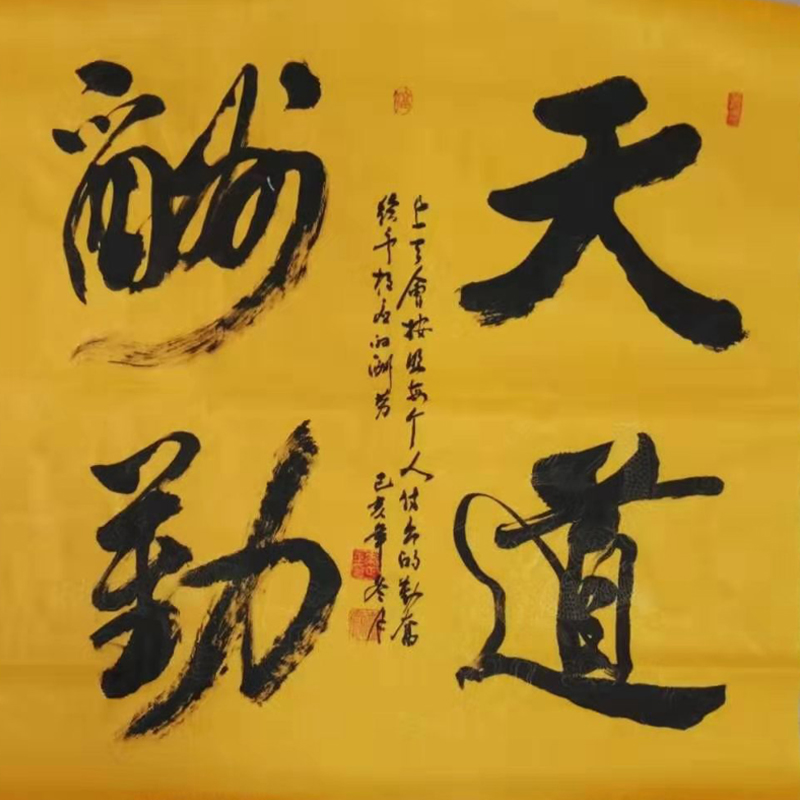 天道
酬勤
上天會按照每个人付出的勤奮
给予相应的酬劳
己亥年冬月